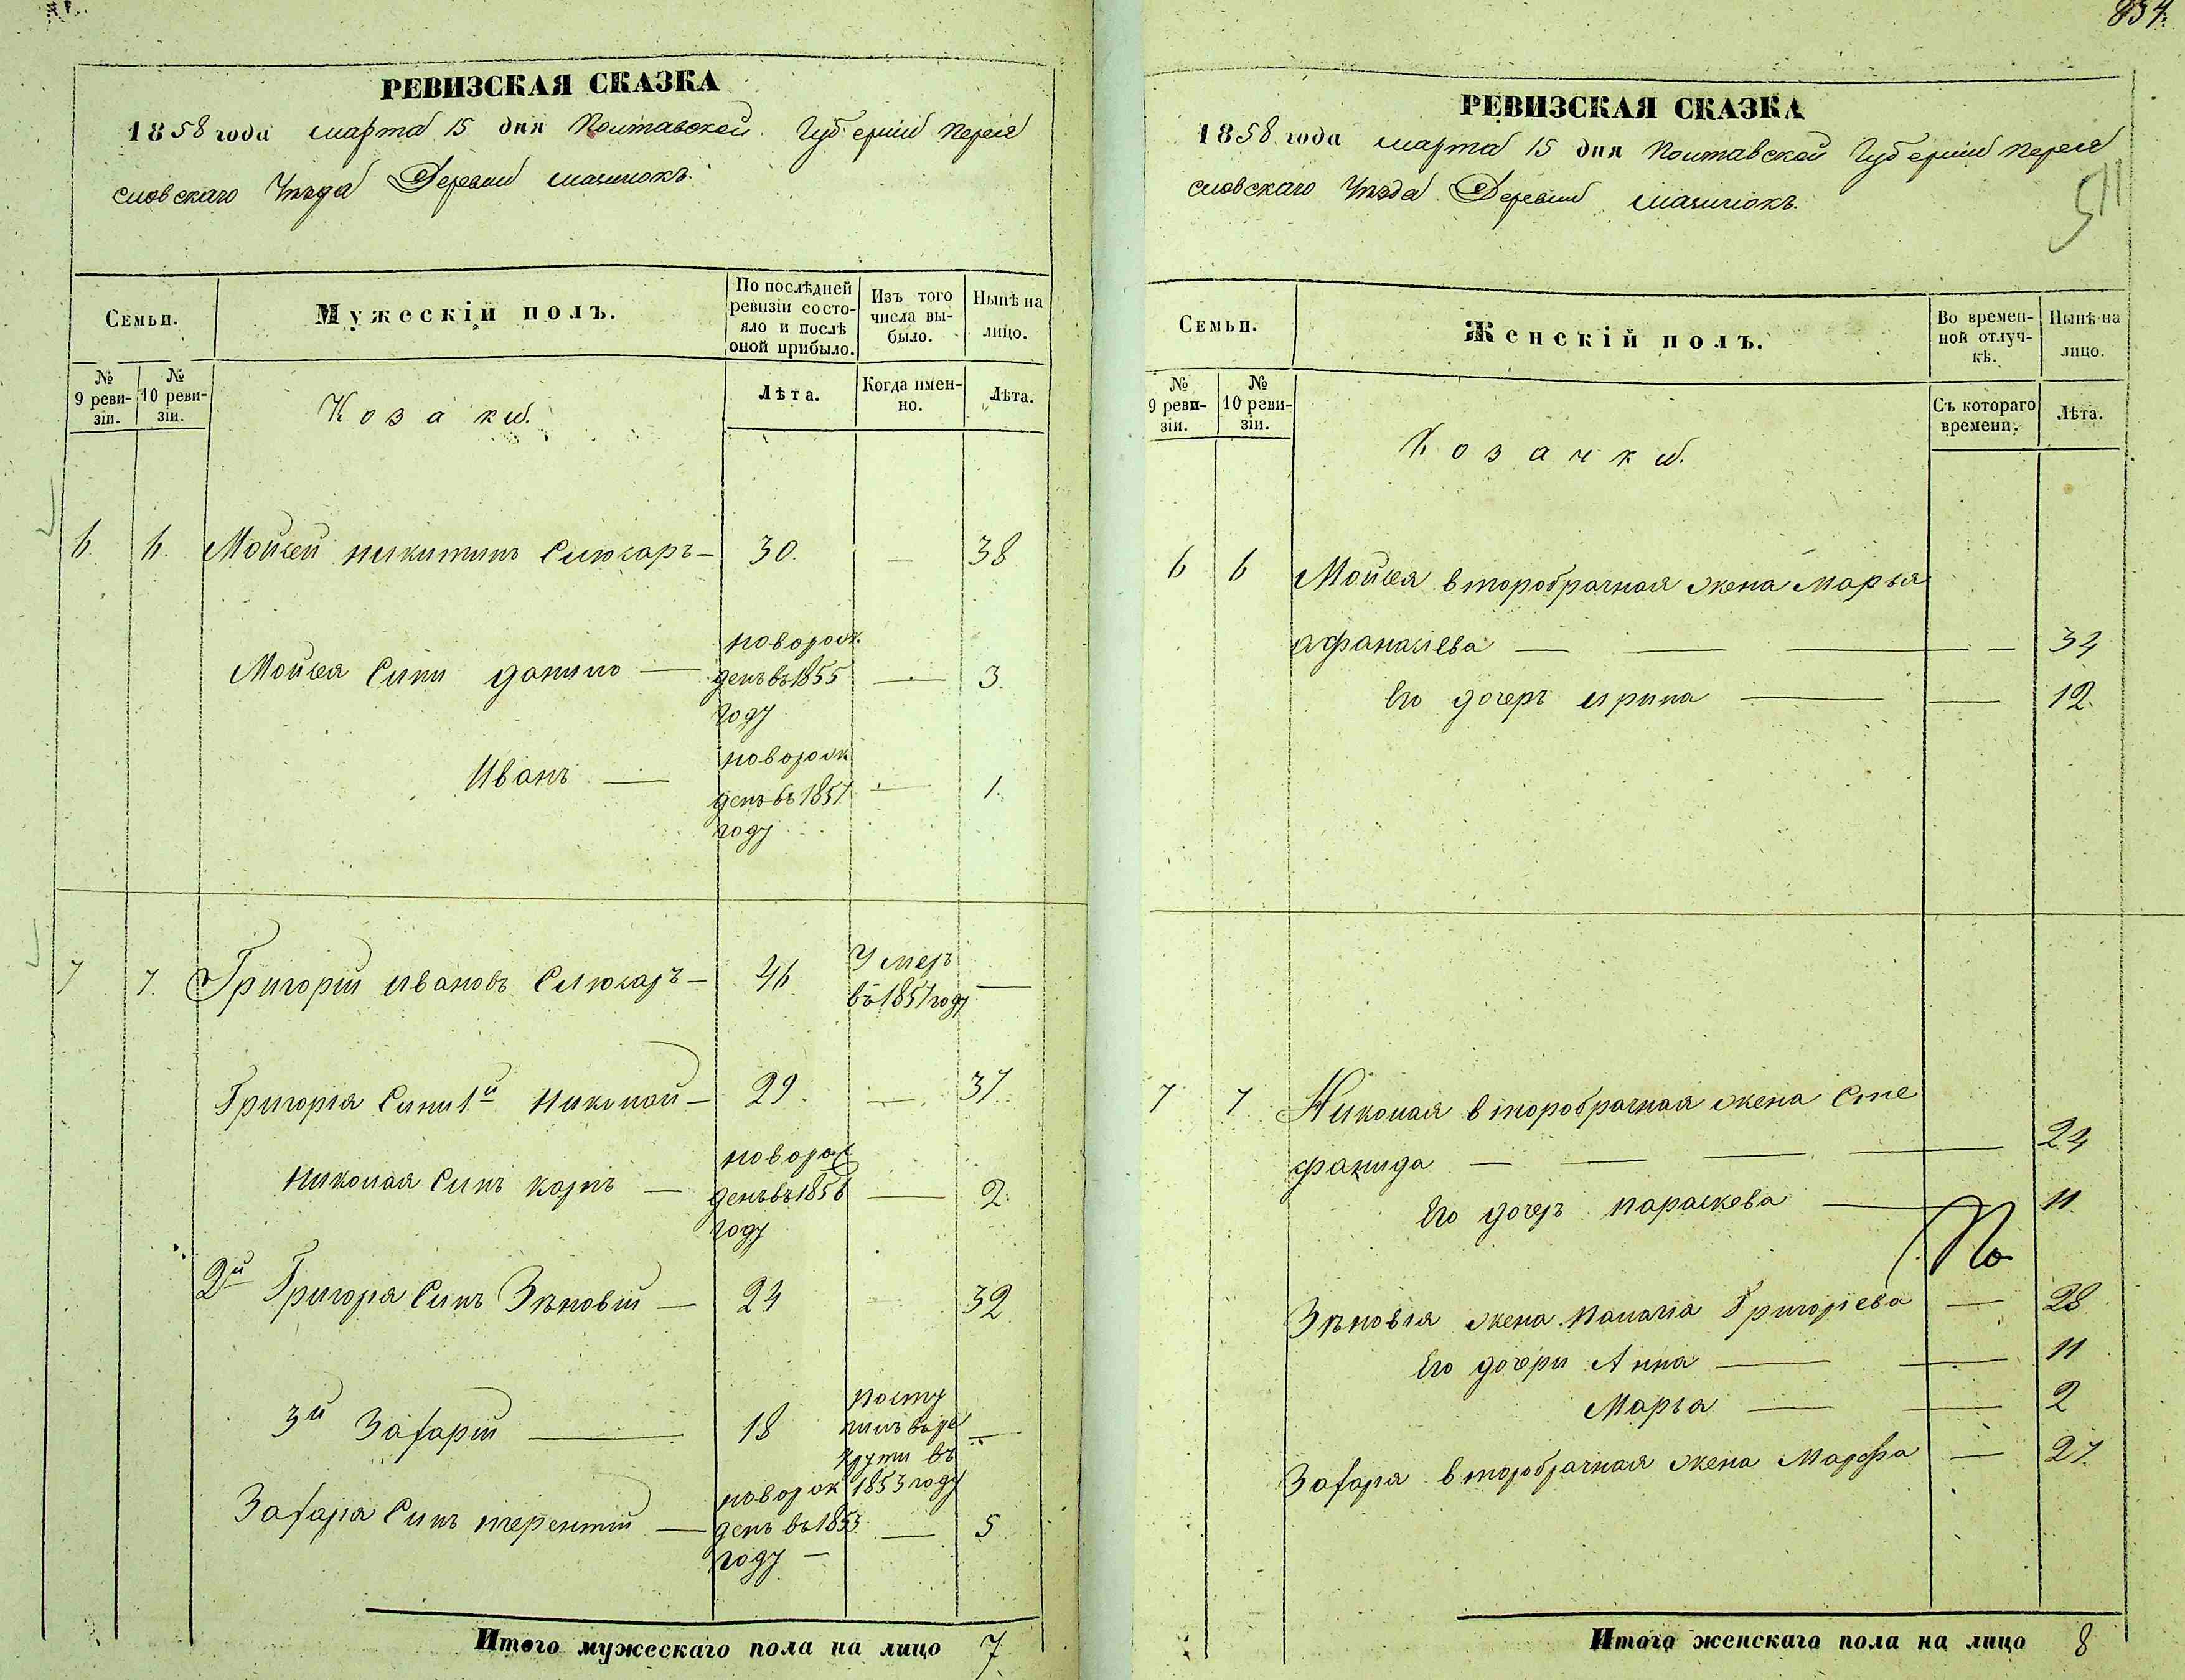 РЕВИЗСКАЯ СКАЗКА
1858 года марта 15 дня Полтавской Губернии Перея
словскаго Уезда Деревни
Семьи.
Мужескій полъ.
По послѣдней ревизіи состо-
яло и послѣ оной прибыло.
Изъ того числа вы-
было.
Нынѣ на лицо.
№ 9 реви-
зіи.
№ 10 реви-
зіи.
Козаки.
Лѣта.
Когда имен-
но.
Лѣта.
6. 6. Мойсей никитинъ Слюсаръ — 30. — 38
Мойсея Сини данило — новорож
денъ въ 1855 — 3.
году
Иванъ — новорож
денъ въ 1857 — 1.
году
7 7. Григорій ивановъ Слюсаръ — 46 Умеръ
въ 1857 году —
Григорія Сини 1й николай — 29. — 37
николая Синъ карпъ — новорож
денъ въ 1856 — 2.
году
2й Григорія Синъ Зѣновій — 24 — 32
3й Захарій — 18 посту
пилъ въ ре
круты въ
1853 году —
Захарія Синъ терентій — новорож
денъ въ 1853 — 5
году —
Итого мужескаго пола на лицо 7.
834.
РЕВИЗСКАЯ СКАЗКА
1858 года марта 15 дня Полтавской Губернии Перея
словскаго Уезда Деревни
511
Семьи.
Женскій полъ.
Во времен-
ной отлуч-
кѣ.
Нынѣ на лицо.
№ 9 реви-
зіи.
№ 10 реви-
зіи.
Козачки.
Съ котораго времени.
Лѣта.
6 6 Мойсея второбрачная жена Марья
афанасіева — 34
Его дочеръ ирина — 12.
7 7 Николая второбрачная жена Сте
фанида — 24
Его дочеръ параскева — 11
По
Зѣновія жена палагіа Григоріева — 28
Его дочери Анна — 11
Марья — 2
Захарія второбрачная жена Марфа — 27.
Итого женскаго пола на лицо 8